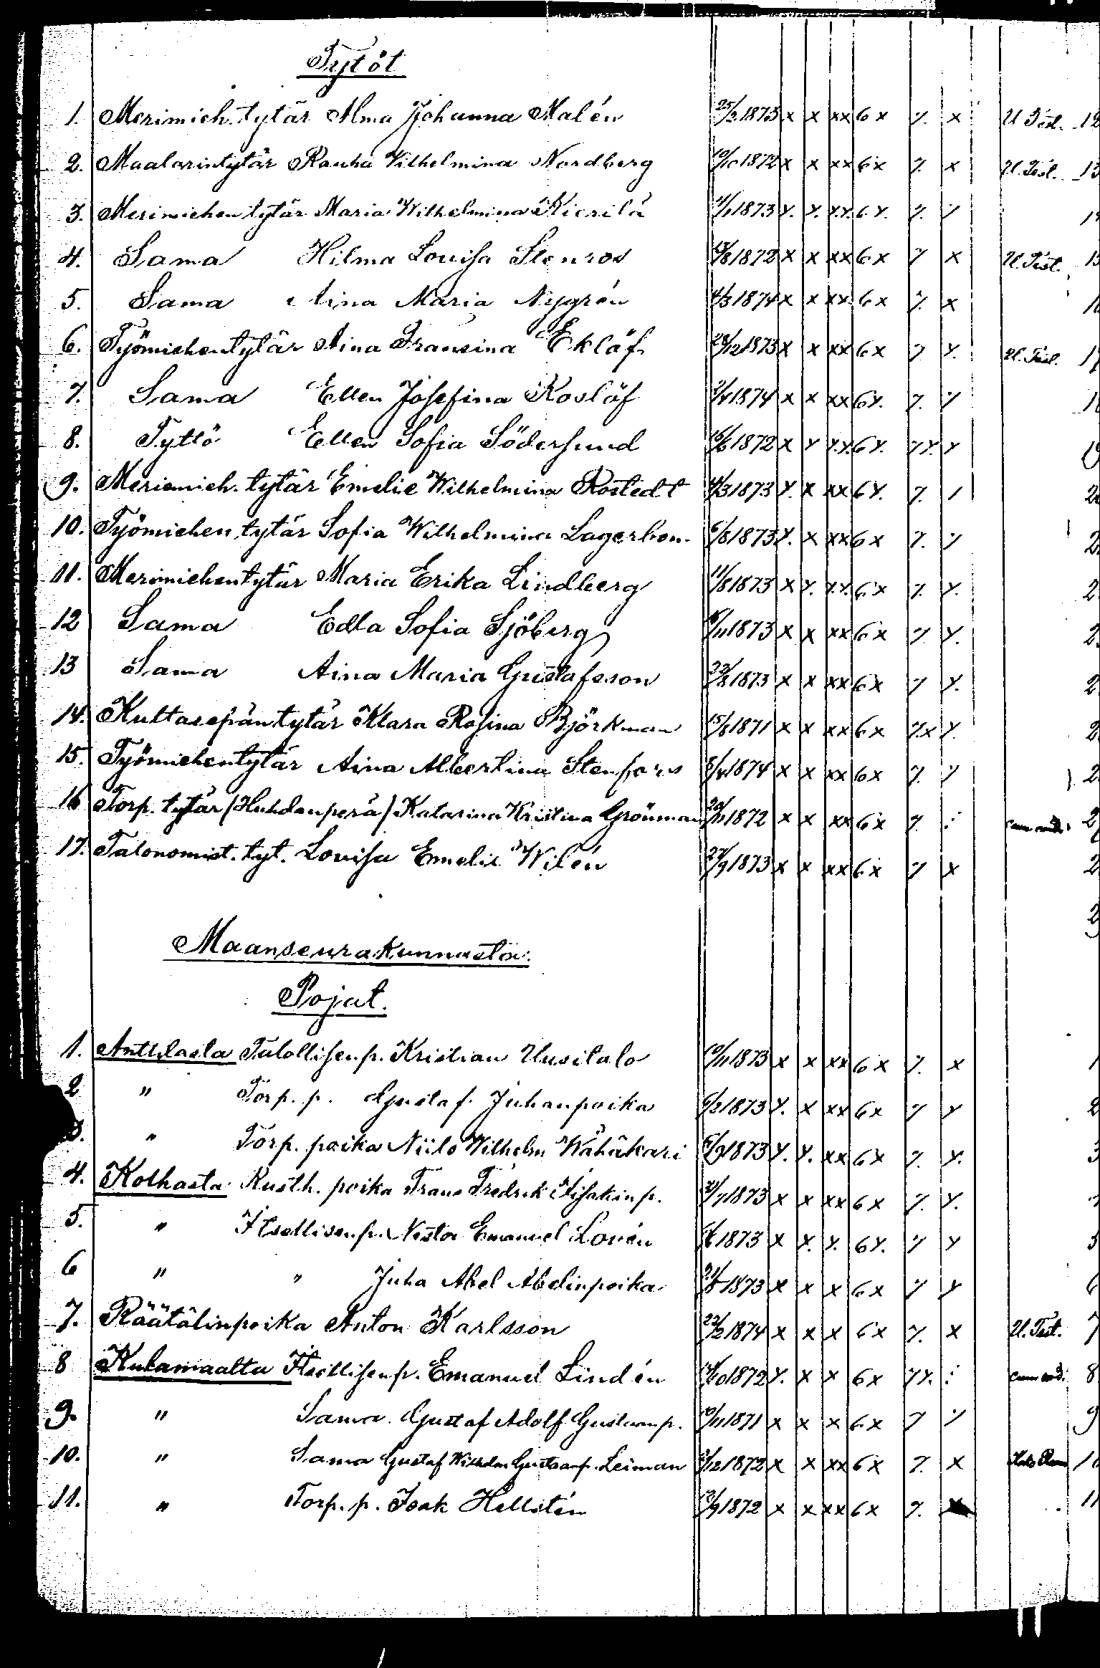 Tytöt
1. Merimieh. tytär Alma Johanna Malén 25/2 1873 x x xx 6 x 7. x U. Test. 12
2. Maalarintytär Rauha Wilhelmina Nordberg 1872 x x xx 6x 7. x U. Test. 13
3. Merimiehen tytär Maria Wilhelmina Kierilä 1873 x. x. xx. 6 x. 7. x
4. Sama Hilma Lovisa Stenros 1872 x x xx 6x 7 x U. Test.
5. Sama Aina Maria Nygrén 1874 x x xx 6x 7. x
6. Työmiehentytär Aina Fransina Eklöf 28/12 1873 x x xx 6x 7 x. U. Test.
7. Sama Ellen Josefina Koslöf 1874 x x xx 6x. 7. x
8. Tyttö Ellen Sofia Söderlund 1872 x x xx 6x. 7x. x
9. Merimieh. tytär Emelie Wilhelmina Rostedt 1873 x. x xx 6x. 7.
10. Työmiehen tytär Sofia Wilhelmina Lagerbom 6/8 1873 x. x xx 6x 7. x
11. Merimiehentytär Maria Erika Lindberg 11/8 1873 x x. xx. 6x 7. x.
12 Sama Edla Sofia Sjöberg 1873 x x xx 6x 7 x.
13 Sama Aina Maria Gustafsson 1873 x x xx 6x 7 x.
14. Kultasepäntytär Klara Rosina Björkman 15/8 1871 x x xx 6x 7x x.
15. Työmiehentytär Aina Albertina Stenfors 8/4 1874 x x xx 6x 7. x
16 Torp. tytär (Huhdanperä) Katarina Kristina Grönman 1872 x x xx 6x 7.
17. Talonomist. tyt. Lovisa Emelie Wilén 27/9 1873 x x xx 6x 7 x
Maanseurakunnasta.
Pojat.
1. Anttilasta Talollisen p. Kristian Uusitalo 1873 x x xx 6x 7. x
2 " Torp. p. Gustaf Juhanpoika 1873 x. x xx 6x 7 x 2
3. " Torp. poika Niilo Wilhelm Wähäkari 1873 x. x. xx 6x 7. x. 3
4. Kolhasta Rusth. poika Frans Fredrik Iisakinp. 1873 x x xx 6x 7. x.
5. " Itsellisen p. Nestor Emanuel Lovén 1873 x x. x. 6x. 7 x 5
6 " " Juha Abel Abelinpoika 1873 x x x 6x 7 x 6
7. Räätälinpoika Anton Karlsson 22/2 1874 x x x 6x 7. x U. Test. 7
8 Kulamaalta Itsellisen p. Emanuel Lindén 1872 x. x x 6x 7x. 8
9. " Sama Gustaf Adolf Gustaanp. 1871 x x x 6x 7 x 9
10. " Sama Gustaf Wilhelm Gustaanp. Leiman 1872 x x xx 6x 7. x
11. " Torp. p. Isak Hellstén 1872 x x xx 6x 7. 11